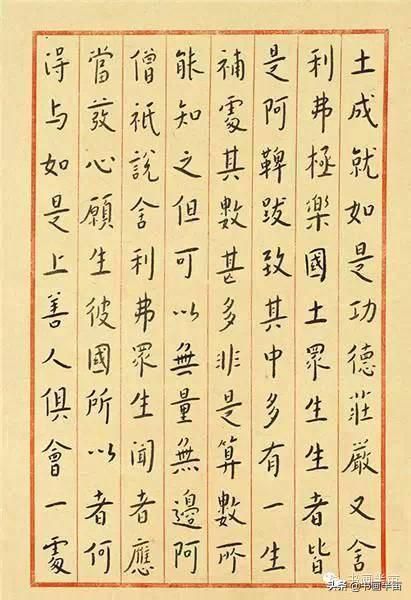 土成就如是功德莊嚴又舍
利弗極樂國土眾生生者皆
是阿鞞跋致其中多有一生
補處其數甚多非是算數所
能知之但可以無量無邊阿
僧祇說舍利弗眾生聞者應
當發心願生彼國所以者何
得与如是上善人俱會一處
头条 @书画